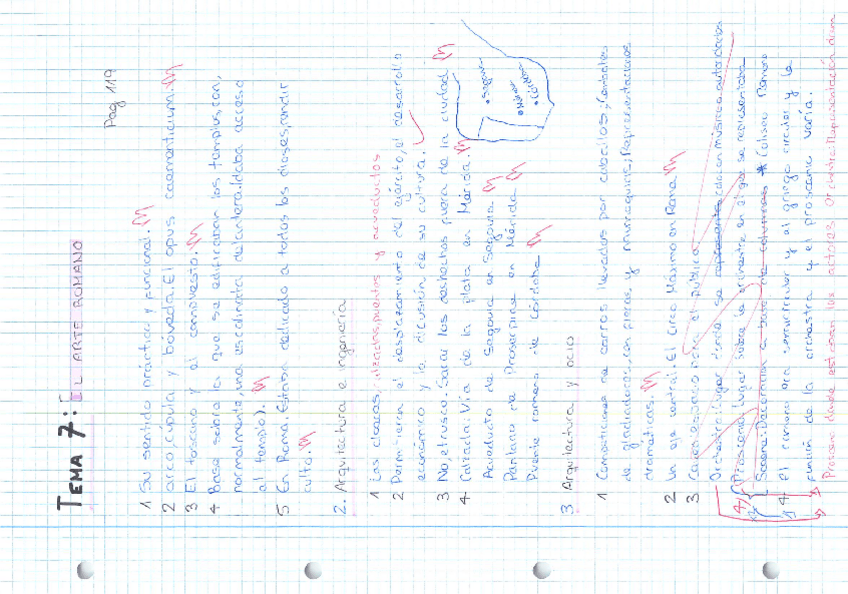 TEMA 7: EL ARTE ROMANO
Pág 119
1 Su sentido práctico y funcional.
2 arco, cúpula y bóveda. El opus caementicium.
3 El toscano y el compuesto.
4 Base sobre la que se edificaban los templos, con,
normalmente, una escalinata delantera. (daba acceso
al templo).
5 En Roma. Estaba dedicado a todos los dioses, rendir
culto.
2. Arquitectura e ingeniería
1 Las cloacas, calzadas, puentes y acueductos
2 Permitieron el desplazamiento del ejército, el desarrollo
económico y la difusión de su cultura.
3 No, etrusco. Sacar los deshechos fuera de la ciudad
4 Calzada: Vía de la plata en Mérida.
Acueducto de Segovia en Segovia
Pantano de Proserpina en Mérida
Puente romano de Córdoba
• Segovia
• Mérida
• Córdoba
3 Arquitectura y ocio
1 Competiciones de carros llevados por caballos, Combates
de gladiadores, con fieras y naumaquias, Representaciones
dramáticas.
2 Un eje central. El Circo Máximo en Roma
3 Cavea: espacio para el público
Orchestra: Lugar donde se coro en música, autoridades
Proscenio: Lugar sobre la orchestra en el que se representaba
Scaena: Decoración a base de columnas * Coliseo Romano
4 El romano era semicircular y el griego circular y la
función de la orchestra y el proscenio varía.
Proscenio donde están los actores Orchestra: Representación